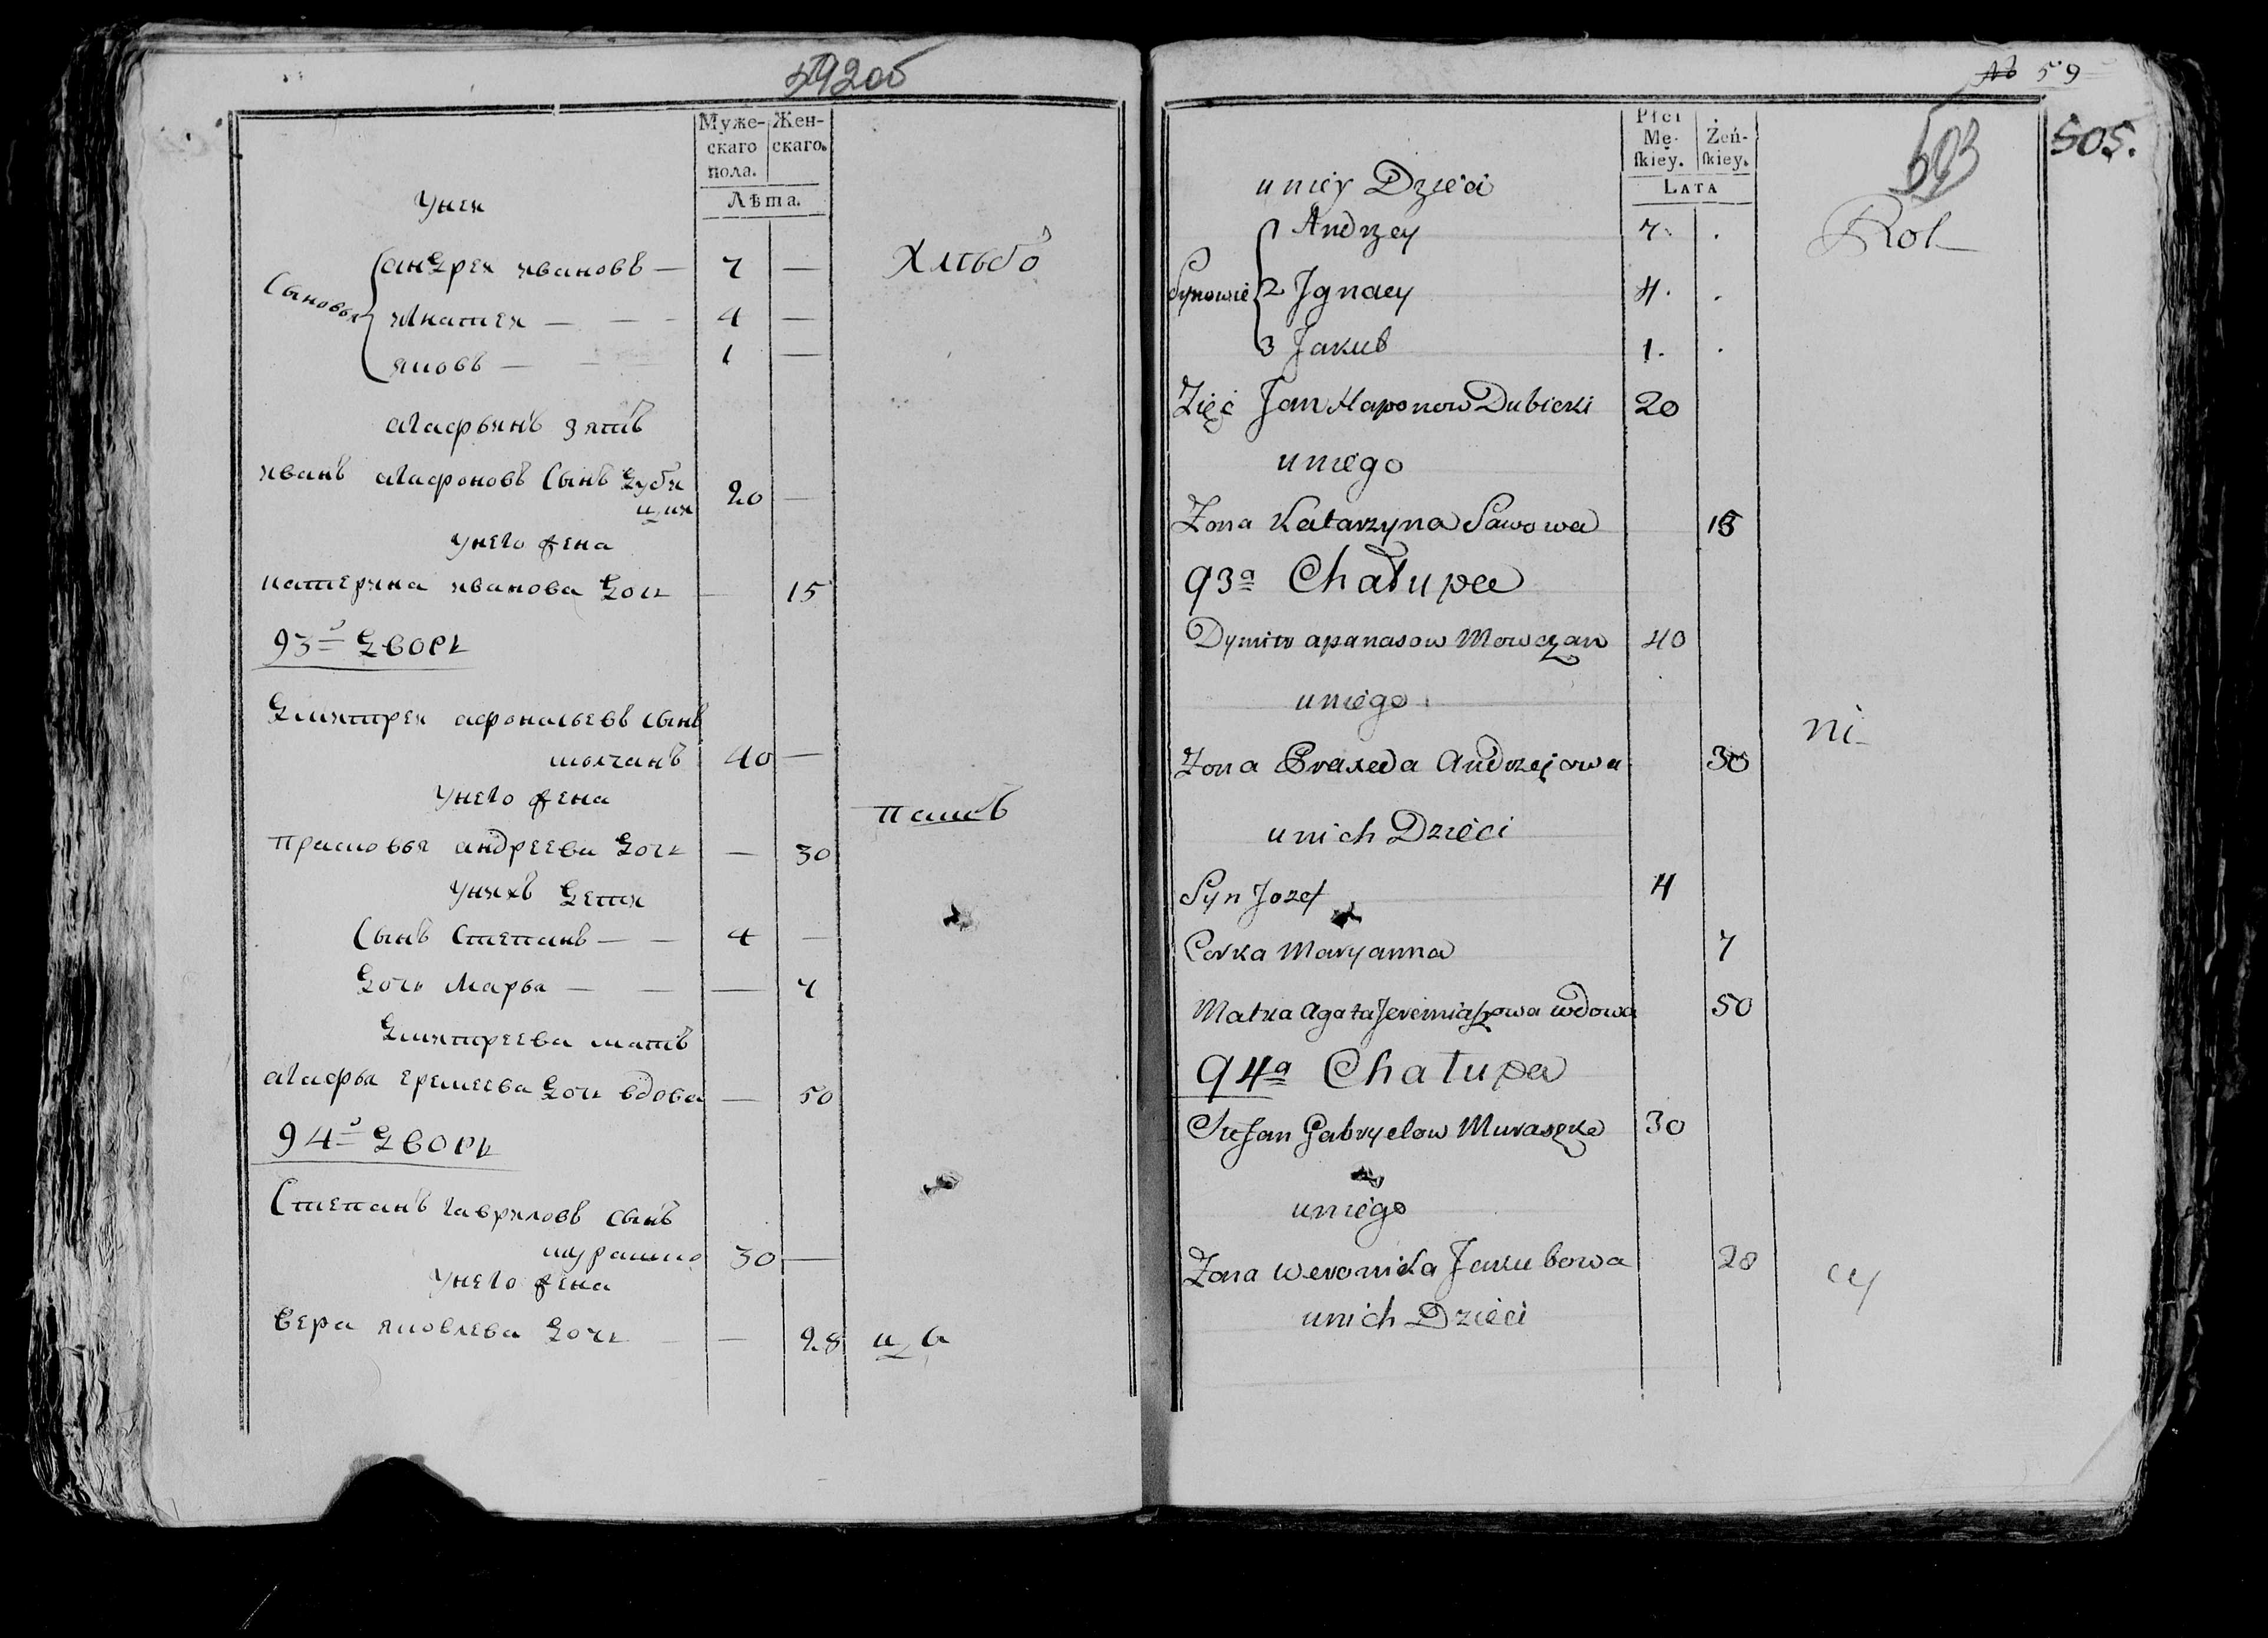 Муже- Жен-
скаго скаго.
пола.
Лѣта.
У нея
Сыновья
Андрей Ивановъ — 7 — Хлѣбо
Игнатей — — — 4 —
Яковъ — 1 —
Агафьинъ зять
Иванъ Агафоновъ Сынъ Дуби
цкий 20 —
У него жена
Катерина Иванова дочь — 15
93й дворъ
Дмитрей Афонасьевъ сынъ
Молчанъ 40 —
У него жена
пашъ
Прасковья Андреева дочь — 30
У нихъ дети
Сынъ Степанъ — — 4 —
дочь Марья — — — 7
Дмитреева мать
Агафья Еремеева дочь вдова — 50
94й дворъ
Степанъ Гавриловъ сынъ
Мурашко 30 —
У него жена
Вера Яковлева дочь — 28 ца
№ 59
505.
503
Płci
Mę- Żeń-
ſkiey. ſkiey.
LATA
u niey Dzieci
Synowie
1 Andrzey 7. . Rol-
2 Jgnacy 4. .
3 Jakub 1. .
Zięć Jan Haponow Dubicki 20
u niego
Żona Katarzyna Sawowa 15
93a Chałupa
Dymitr apanasow Mowczan 40
u niego
ni-
Żona Praxeda Andrzejowa 30
u nich Dzieci
Syn Jozef 4
Corka Maryanna 7
Matka Agata Jeremiaszowa wdowa 50
94a Chałupa
Stefan Gabryelow Muraszka 30
u niego
Żona Weronika Jakubowa 28 cy
u nich Dzieci